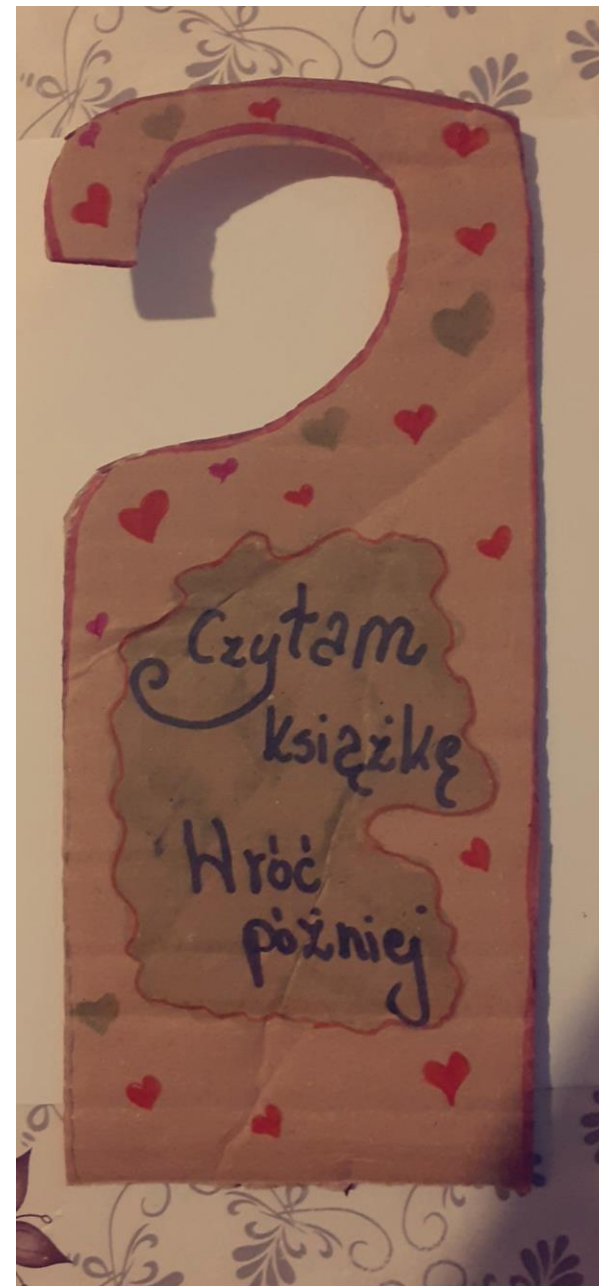 Czytam
książkę
Wróć
później